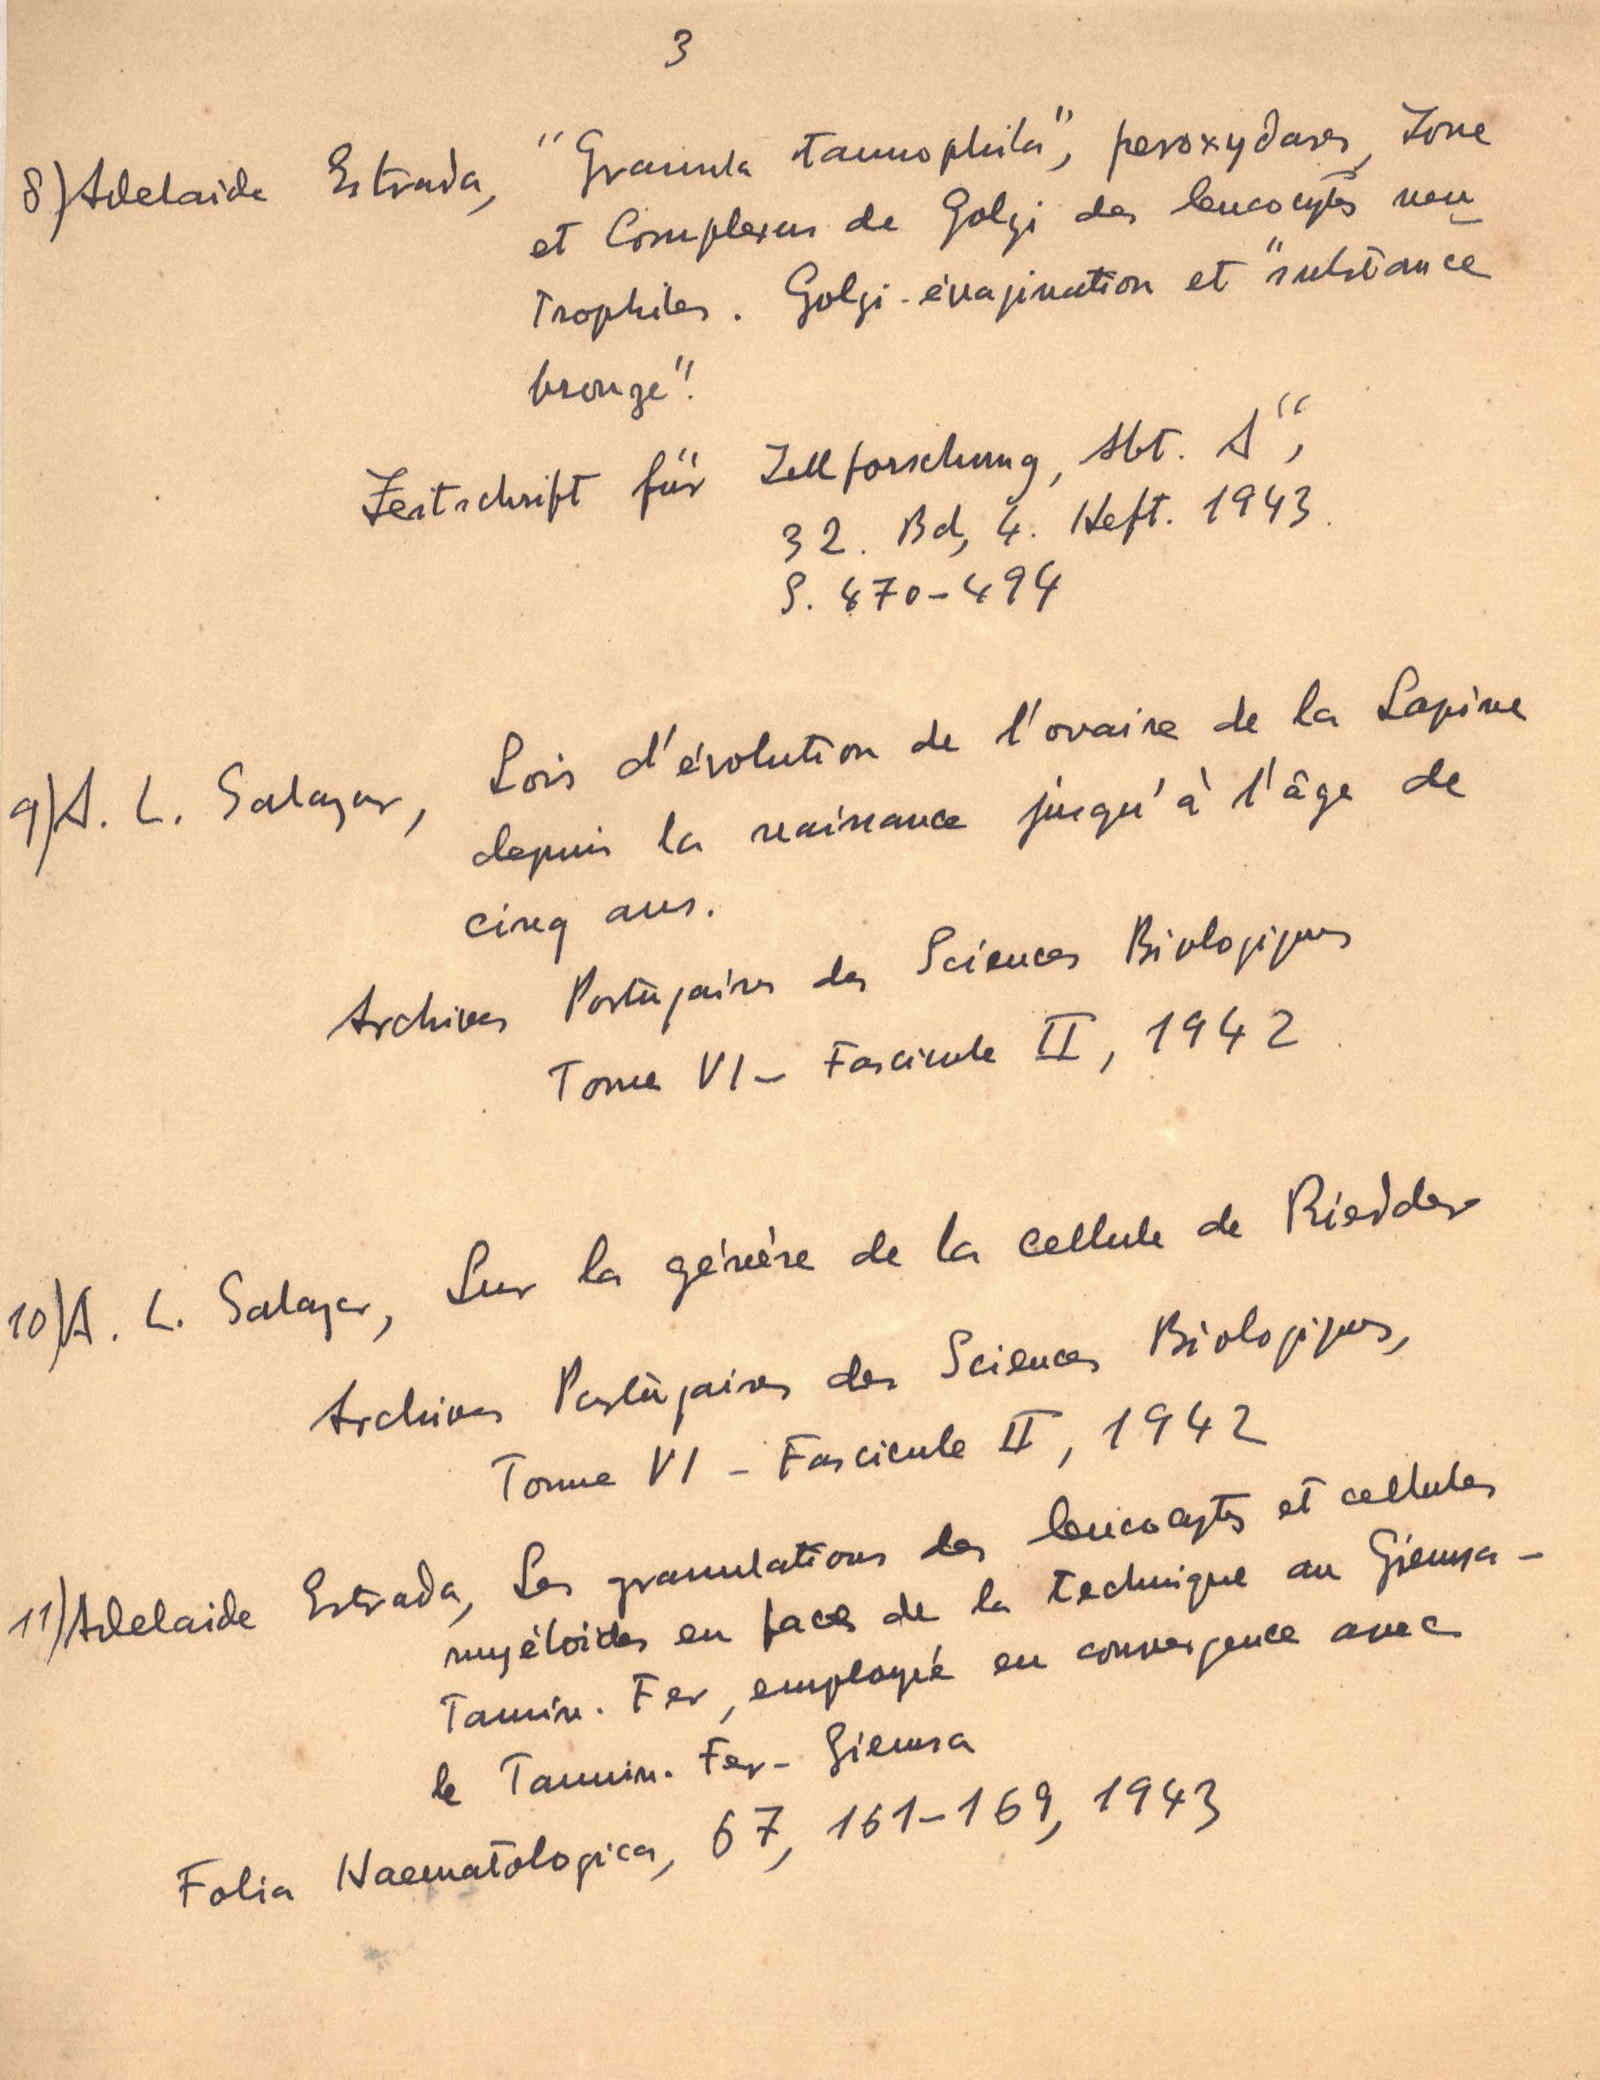 3
8) Adelaide Estrada, "Granula tannophila", peroxydases, Zone
et Complexus de Golgi des leucocytes neu-
trophiles. Golgi-évagination et "substance
bronze".
Zeitschrift für Zellforschung, Abt. A",
32. Bd, 4. Heft. 1943.
S. 470-494
9) A. L. Salazar, Lois d'évolution de l'ovaire de la Lapine
depuis la naissance jusqu'à l'âge de
cinq ans.
Archives Portugaises des Sciences Biologiques
Tome VI - Fascicule II, 1942.
10) A. L. Salazar, Sur la génèse de la cellule de Riedder
Archives Portugaises des Sciences Biologiques,
Tome VI - Fascicule II, 1942
11) Adelaide Estrada, Les granulations des leucocytes et cellules
myéloïdes en face de la technique au Giemsa-
Tannin. Fer, employé en convergence avec
le Tannin. Fer - Giemsa
Folia Haematologica, 67, 161-169, 1943